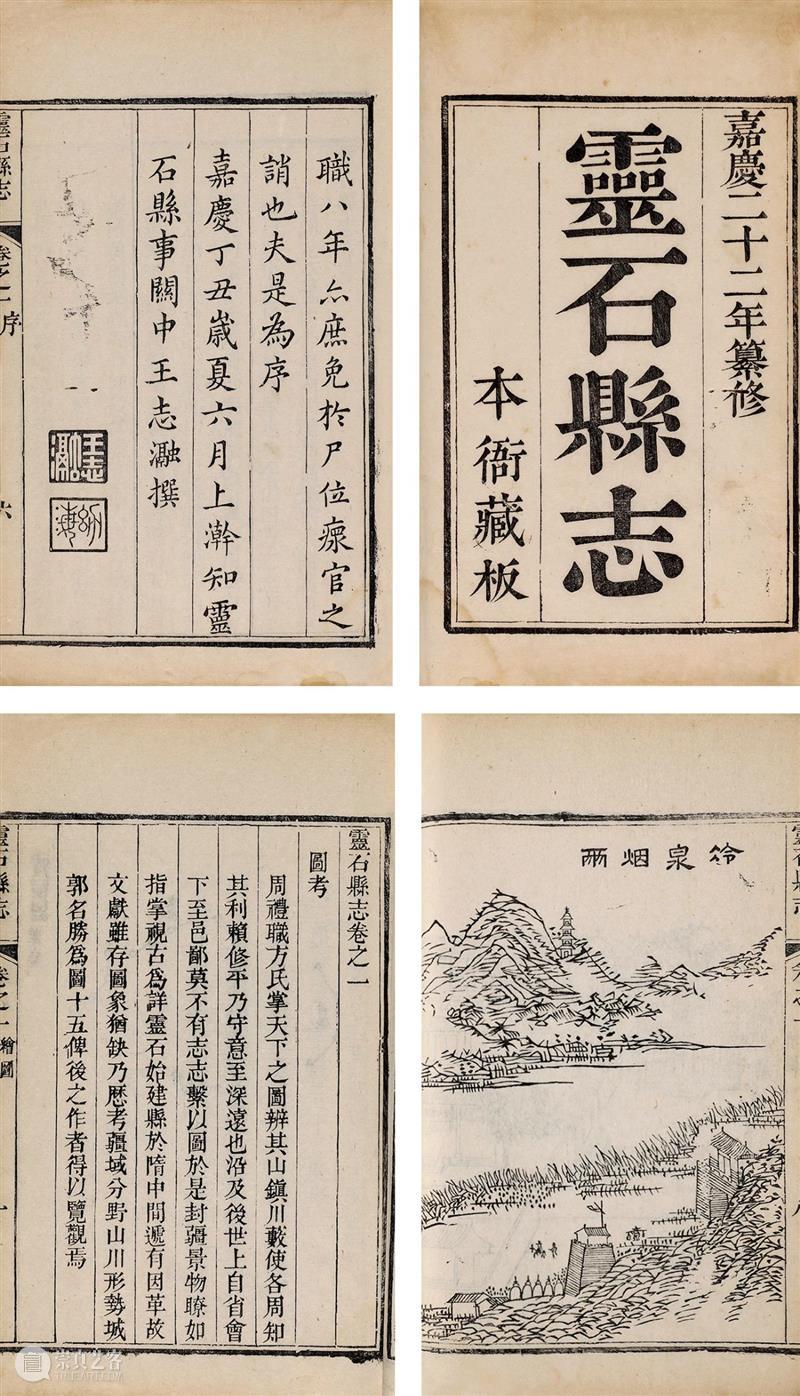 嘉慶二十二年纂修
靈石縣志
本衙藏板
職八年亦庶免於尸位瘝官之
誚也夫是為序
嘉慶丁丑嵗夏六月上澣知靈
石縣事關中王志瀜撰
王志瀜
幼海
靈石縣志
卷之一 序
六
冷泉烟雨
靈石縣志
卷之一
八
靈石縣志卷之一
圖考
周禮職方氏掌天下之圖辨其山鎮川藪使各周知
其利賴修平乃守意至深遠也沿及後世上自省會
下至邑鄙莫不有志志繫以圖於是封疆景物瞭如
指掌視古爲詳靈石始建縣於隋中間遞有因革故
文獻雖存圖象猶缺乃歷考疆域分野山川形勢城
郭名勝爲圖十五俾後之作者得以覽觀焉
靈石縣志
卷之一 繪圖
一
崇真艺客